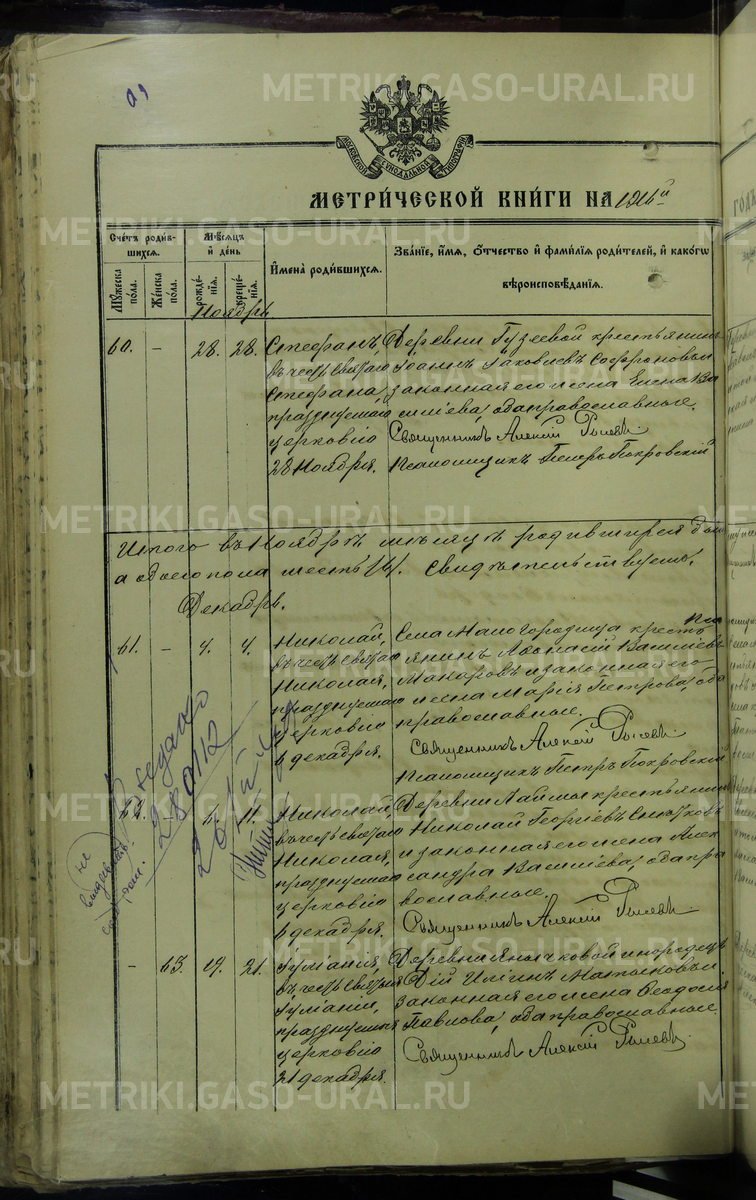 МОСКОВСКОЙ СѴНОДАЛЬНОЙ ТИПОГРАФІИ
МЕТРИ́ЧЕСКОЙ КНИ́ГИ НА 1916й
Счетъ роди́в-
шихся.
Мѣсяцъ
и́ де́нь
Мꙋжеска по́ла.
Же́нска по́ла.
рожде́нїя.
креще́нїя.
И҆мена̀ роди́вшихся.
Зва́нїе, и҆́мѧ, ѻ҆́тчество и҆ фами́лїя роди́телей, и҆ како́гѡ
вѣроисповѣ́данїя.
Ноябрь
60. – 28. 28.
Стефанъ,
въ честь святаго
Стефана,
празднуемаго
церковію
28 Ноября.
Деревни Гузеевой крестьянинъ
Іоаннъ Іаковлевъ Софроновъ и
законная его жена Елена Ва
силіева, оба православные.
Священникъ Алексій
Псаломщикъ Петръ Покровскій
Итого въ Ноябрѣ мѣсяцѣ родившихся
а обоего пола шесть (6). Свидѣтельствуемъ.
Декабрь.
61. – 4. 4.
Николай,
въ честь святаго
Николая,
празднуемаго
церковію
6 декабря.
Села Малогородища кресть
янинъ Аѳонасій Василіевъ
Макаровъ и законная его
жена Марія Петрова, оба
православные.
Священникъ Алексій
Псаломщикъ Петръ Покровскій
62. 6. 11.
Николай,
въ честь святаго
Николая,
празднуемаго
церковію
6 декабря.
Деревни крестьянинъ
Николай Георгіевъ
и законная его жена Алек
сандра Василіева, оба пра
вославные.
Священникъ Алексій
– 63. 19. 21.
Іуліанія,
въ честь святыя
Іуліаніи,
празднуемыя
церковію
21 декабря.
Деревни инородецъ
Дій Илинъ и
законная его жена Ѳеодосія
Павлова, оба православные.
Священникъ Алексій
METRIKI.GASO-URAL.RU